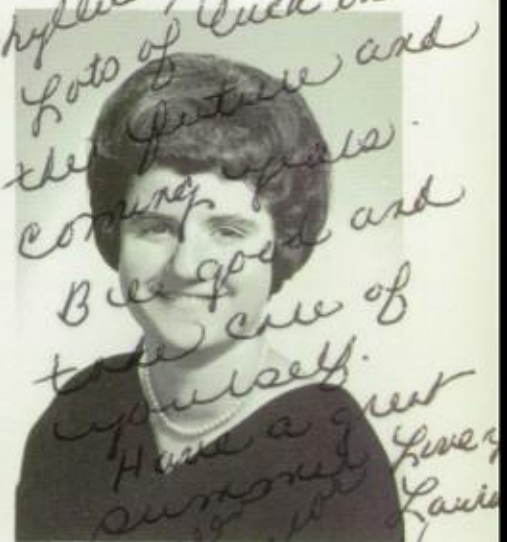 Lots of luck in
the future and
coming years.
Bee good and
take care of
yourself.
Have a great
summer